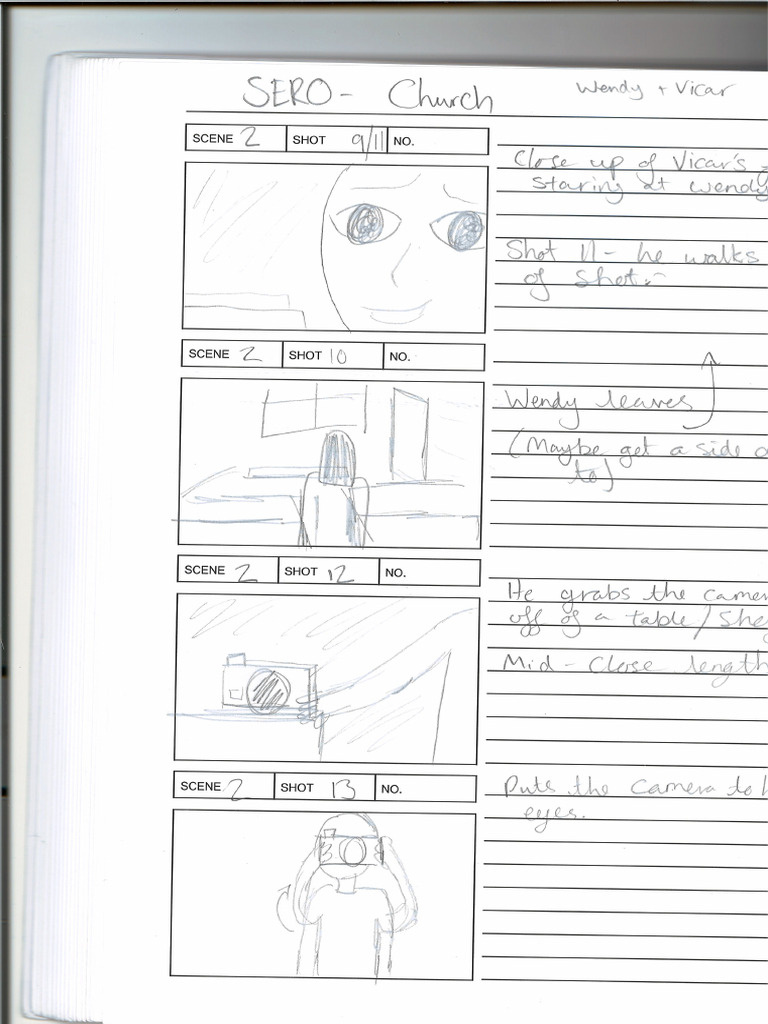 SERO - Church
Wendy + Vicar
SCENE 2 SHOT 9/11 NO.
Close up of Vicar's
staring at wendy
Shot 11 - he walks
of shot.
SCENE 2 SHOT 10 NO.
Wendy leaves
(Maybe get a side
to)
SCENE 2 SHOT 12 NO.
He grabs the camer
off of a table/She
Mid - Close length
SCENE 2 SHOT 13 NO.
Puts the camera to h
eyes.